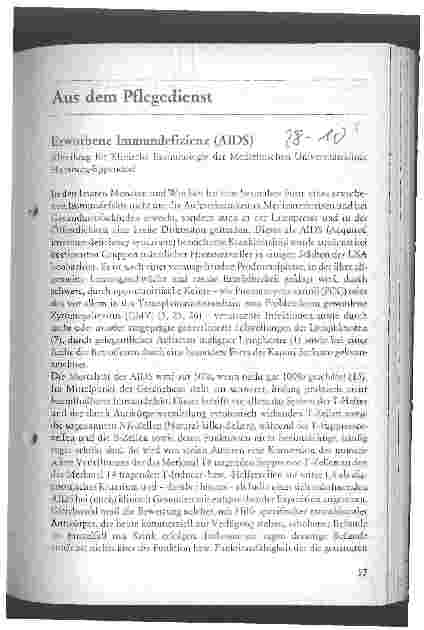 Aus dem Pflegedienst
Erworbene Immundefizienz (AIDS)
28-10
Abteilung für Klinische Immunologie der Medizinischen Universitätsklinik
Hamburg-Eppendorf
In den letzten Monaten und Wochen hat eine besondere Form eines erworbe-
nen Immundefekts nicht nur die Aufmerksamkeit von Medizinern und
Gesundheitsbehörden erweckt, sondern auch in der Laienpresse und in der
Öffentlichkeit eine breite Diskussion gefunden. Dieses als AIDS (Acquired
immune deficiency syndrome) bezeichnete Krankheitsbild wurde zunächst bei
bestimmten Gruppen männlicher Homosexueller in einigen Städten der USA
beobachtet. Es ist nach einer vorausgehenden Prodromalphase, in der über all-
gemeine
schwere, durch opportunistische Keime - wie Pneumocystis carinii (PCC) oder
das vor allem in der Transplantationsmedizin zum Problem gewordene
Zytomegalievirus (CMV) (3, 25, 26) - verursachte Infektionen sowie durch
mehr oder minder ausgeprägte generalisierte Schwellungen der Lymphknoten
(7), durch gelegentliches Auftreten maligner Lymphome (1) sowie bei einer
Reihe der Betroffenen durch eine besondere Form des Kaposi Sarkoms gekenn-
zeichnet.
Die Mortalität des AIDS wird auf 50%, wenn nicht gar 100% geschätzt (15).
Im Mittelpunkt des Geschehens steht ein schwerer, bislang praktisch nicht
beeinflußbarer Immundefekt. Dieser betrifft vor allem das System der T-Helfer
und der durch Antikörpervermittlung zytotoxisch wirkenden T-Zellen sowie
die sogenannten NK-Zellen (Natural killer-Zellen), während die T-Suppressor-
zellen und die B-Zellen sowie deren Funktionen nicht beeinträchtigt, häufig
sogar erhöht sind. So wird von vielen Autoren eine Konversion des norma-
len Verhältnisses der das Merkmal 8 tragenden Suppressor-T-Zellen zu den
das Merkmal 4 tragenden T-Inducer- bzw. -Helferzellen
AIDS bei (noch) klinisch Gesunden mit entsprechender Exposition angesehen.
Gleichwohl muß die Bewertung solcher, mit Hilfe spezifischer monoklonaler
Antikörper, die heute kommerziell zur Verfügung stehen, erhobener Befunde
im Einzelfall mit Kritik erfolgen. Insbesondere sagen derartige Befunde
zunächst nichts über die Funktion bzw. Funktionsfähigkeit der die genannten
57